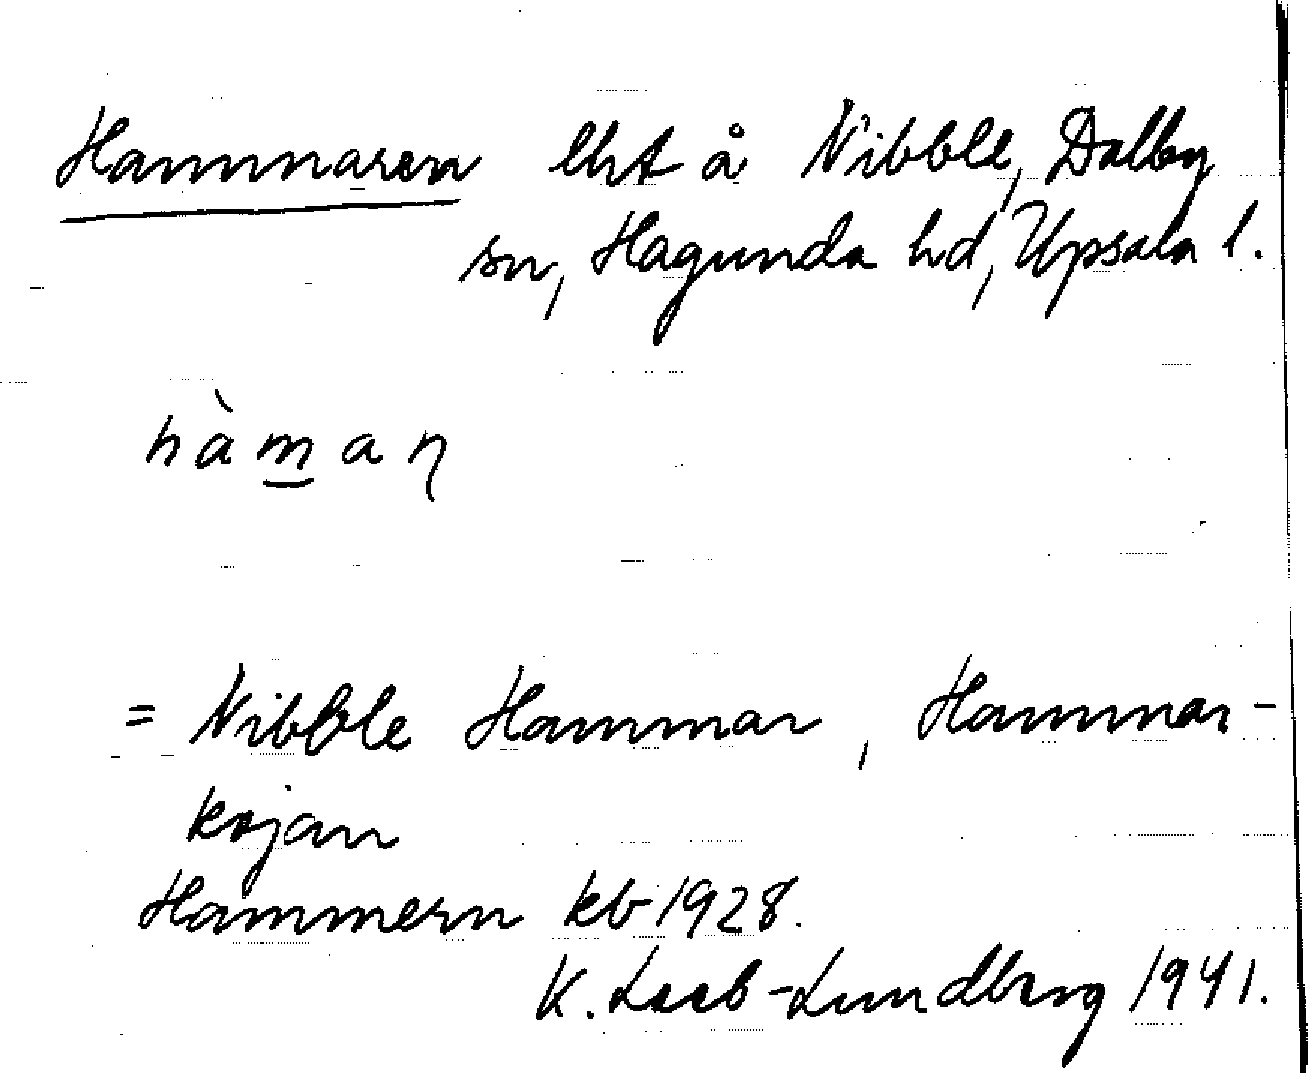 Hammaren lht å Nibble, Dalby
sn, Hagunda hd, Upsala l.
hàm̲aṇ
= Nibble Hammar, Hammar-
kojan
Hammern kb 1928.
K. Leeb-Lundberg 1941.